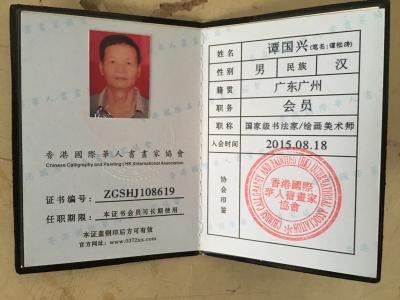 香港國際華人書畫家協會
Chinese Calligraphy and Painting (HK) International Association
证书编号: ZGSHJ108619
任职期限: 本证书会员可长期使用
本证盖钢印后方可有效
官方网址: www.0372xx.com
姓名 谭国兴(笔名:谭桂涛)
性别 男 民族 汉
籍贯 广东广州
职务 会员
职称 国家级书法家/绘画美术师
入会时间 2015.08.18
协会印签
香港國際
華人書畫家
協會